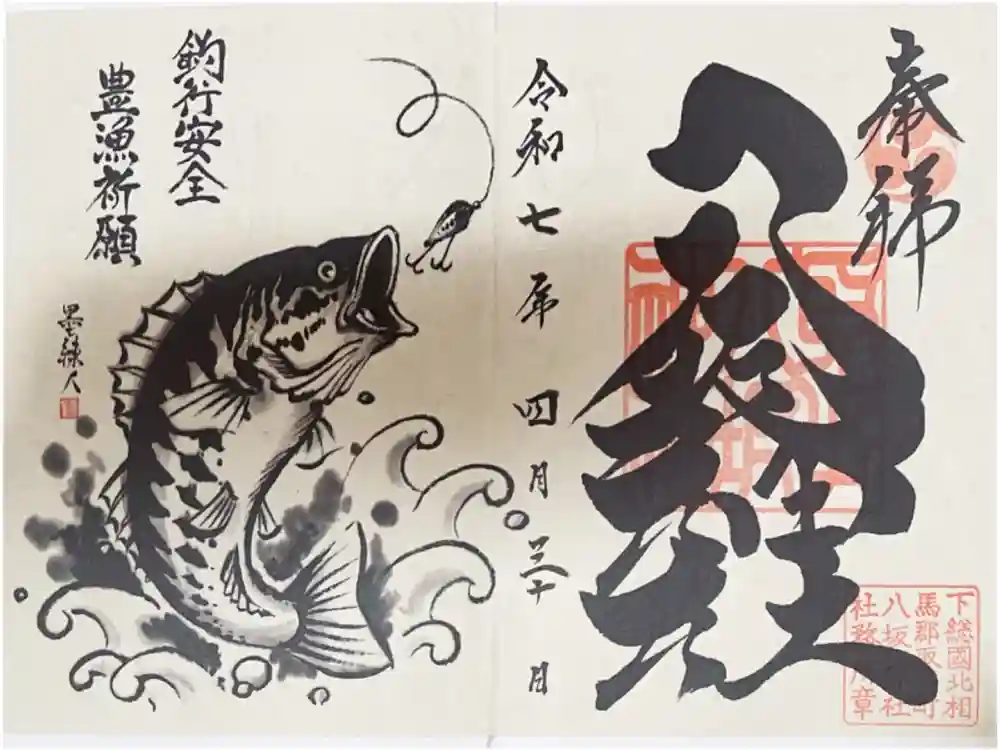 奉拝
八坂神社
令和七年四月三十日
下總國北相
馬郡取手町
八坂神社
社務所章
釣行安全
豊漁祈願